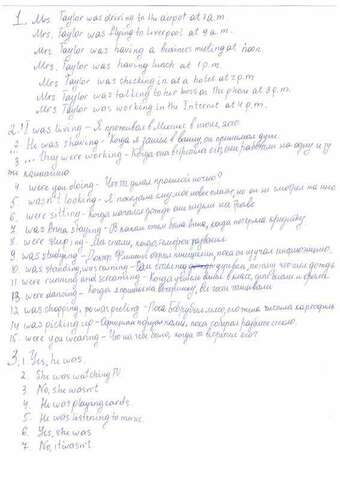 1. Mrs. Taylor was driving to the airpot at 7 a.m.
Mrs. Taylor was flying to Liverpool at 9 a.m.
Mrs. Taylor was having a business meeting at noon.
Mrs. Taylor was having lunch at 1 p.m.
Mrs Taylor was checking in at a hotel at 2 p.m
Mrs Taylor was talking to her boss on the phone at 3 p.m.
Mrs Taylor was working in the Internet at 4 p.m.
2. 1 I was living - Я проживал в
2. He was shaving - Когда я зашел в ванну, он принимал душ.
3. ... They were working - Когда она встретила его, они работали на одну и ту
же компанию
4 were you doing - Что ты делал прошлой ночью?
5 wasn't looking - Я показала ему мое новое платье, но он не смотрел на него
6. were sitting - Когда начался дождь они сидели на траве
7 was Anna staying - В каком отеле была Анна, когда потеряла
8. were sleeping - Мы спали, когда телефон зазвонил
9. was studying - Доктор Флеминг открыл пенициллин, пока он изучал
10. was standing, was raining - Там стоял под деревом, потому что шел дождь
11. were running and screaming - Когда я увидел они бежали и кричали
13. were dancing - Когда я пришел на вечеринку, все танцевали
12. was chopping, was peeling - Роса лес, она чистила картофель
14 was picking up - пока собирал разбитое стекло.
15. were you wearing - Что на тебе было, когда ты встретил его?
3. 1 Yes, he was.
2. She was watching TV
3. No, she wasn't
4. He was playing cards.
5. He was listening to music
6. Yes, she was
7. No, it wasn't.